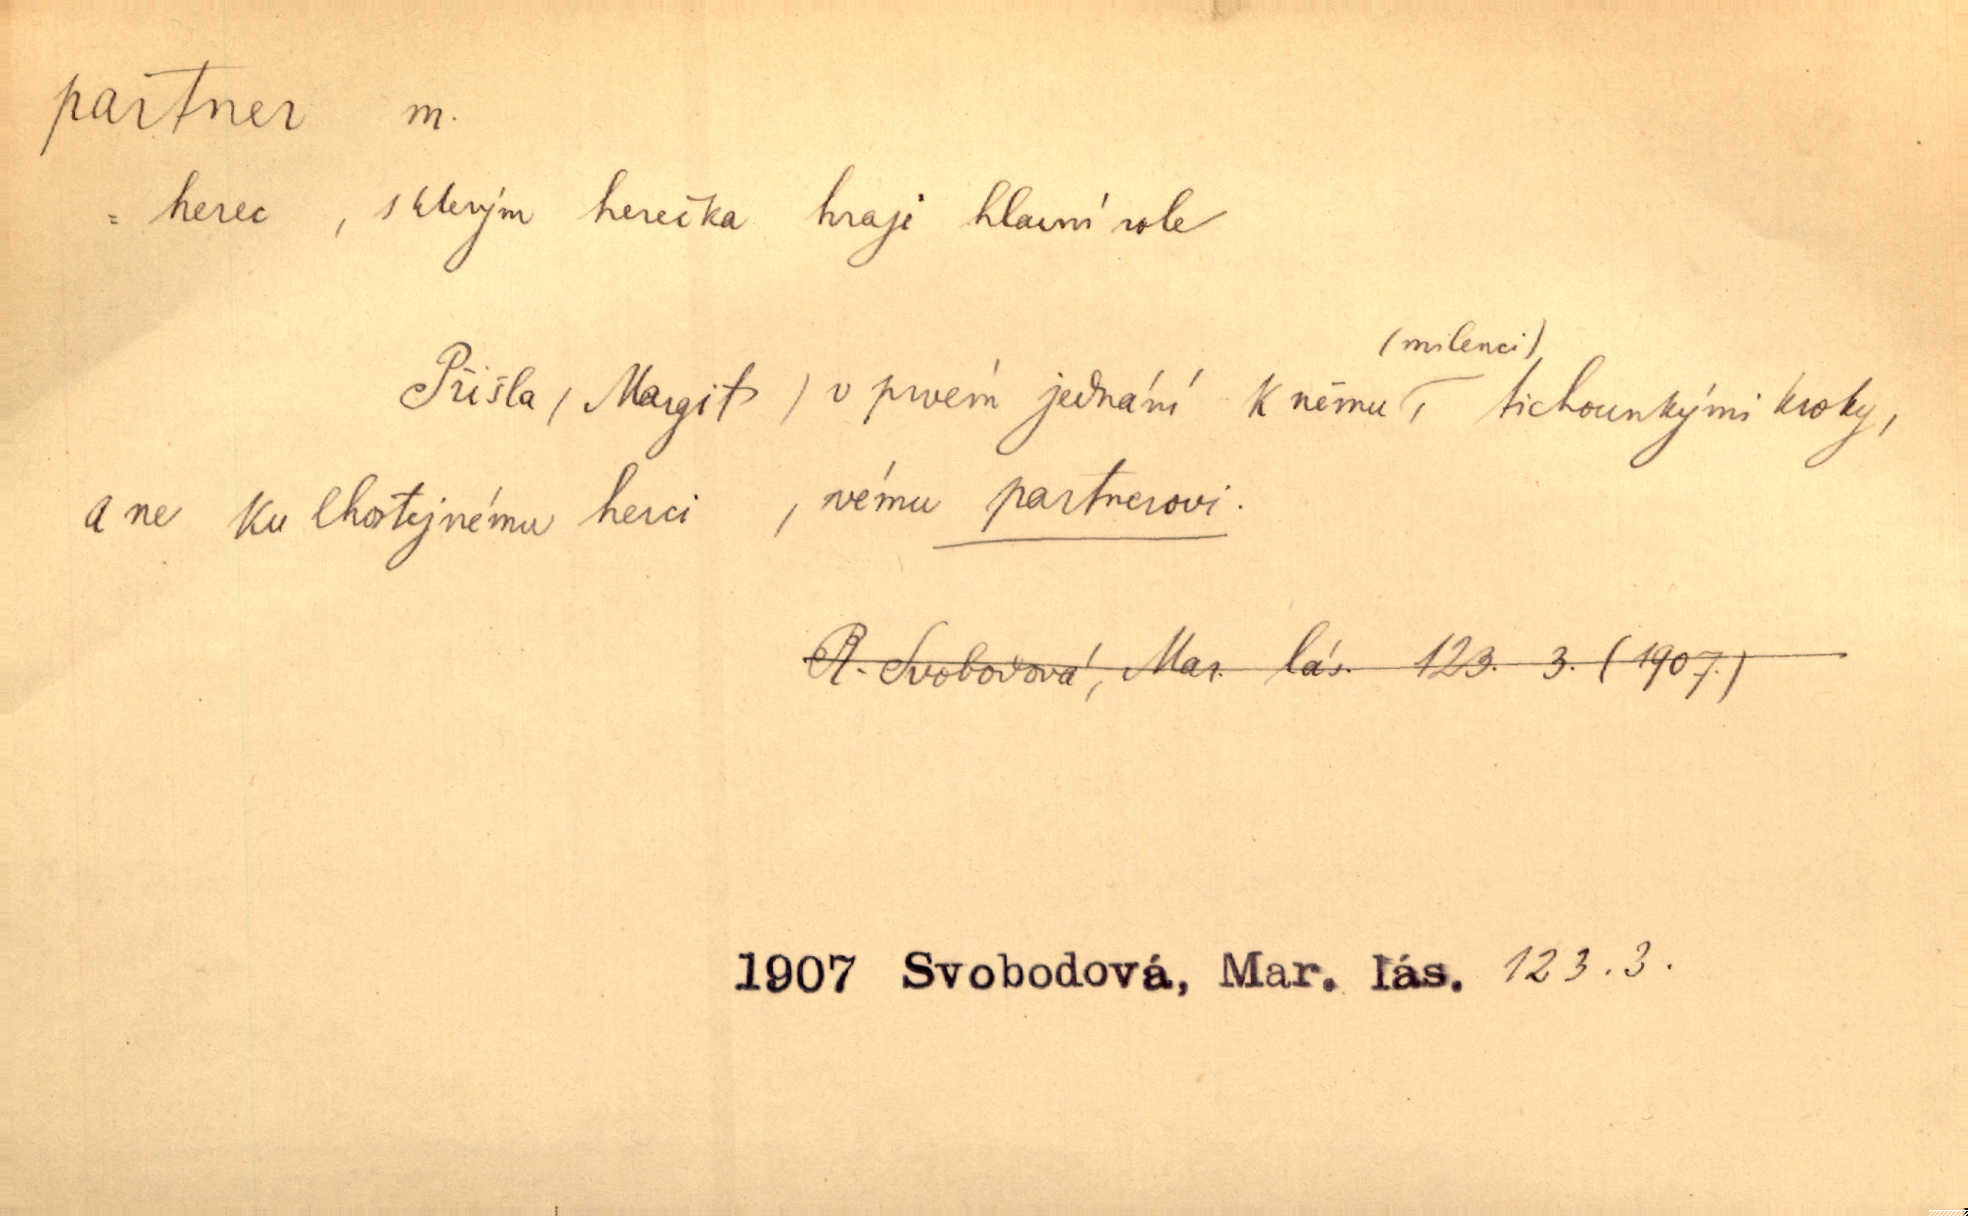 partner m.
= herec, s kterým herečka hraje hlavní role
(milenci)
Přišla (Margit) v prvém jednání k němu, tichounkými kroky,
a ne ku lhostejnému herci, svému partnerovi.
R. Svobodová, Mar. lás. 123. 3. (1907.)
1907 Svobodová, Mar. lás. 123.3.